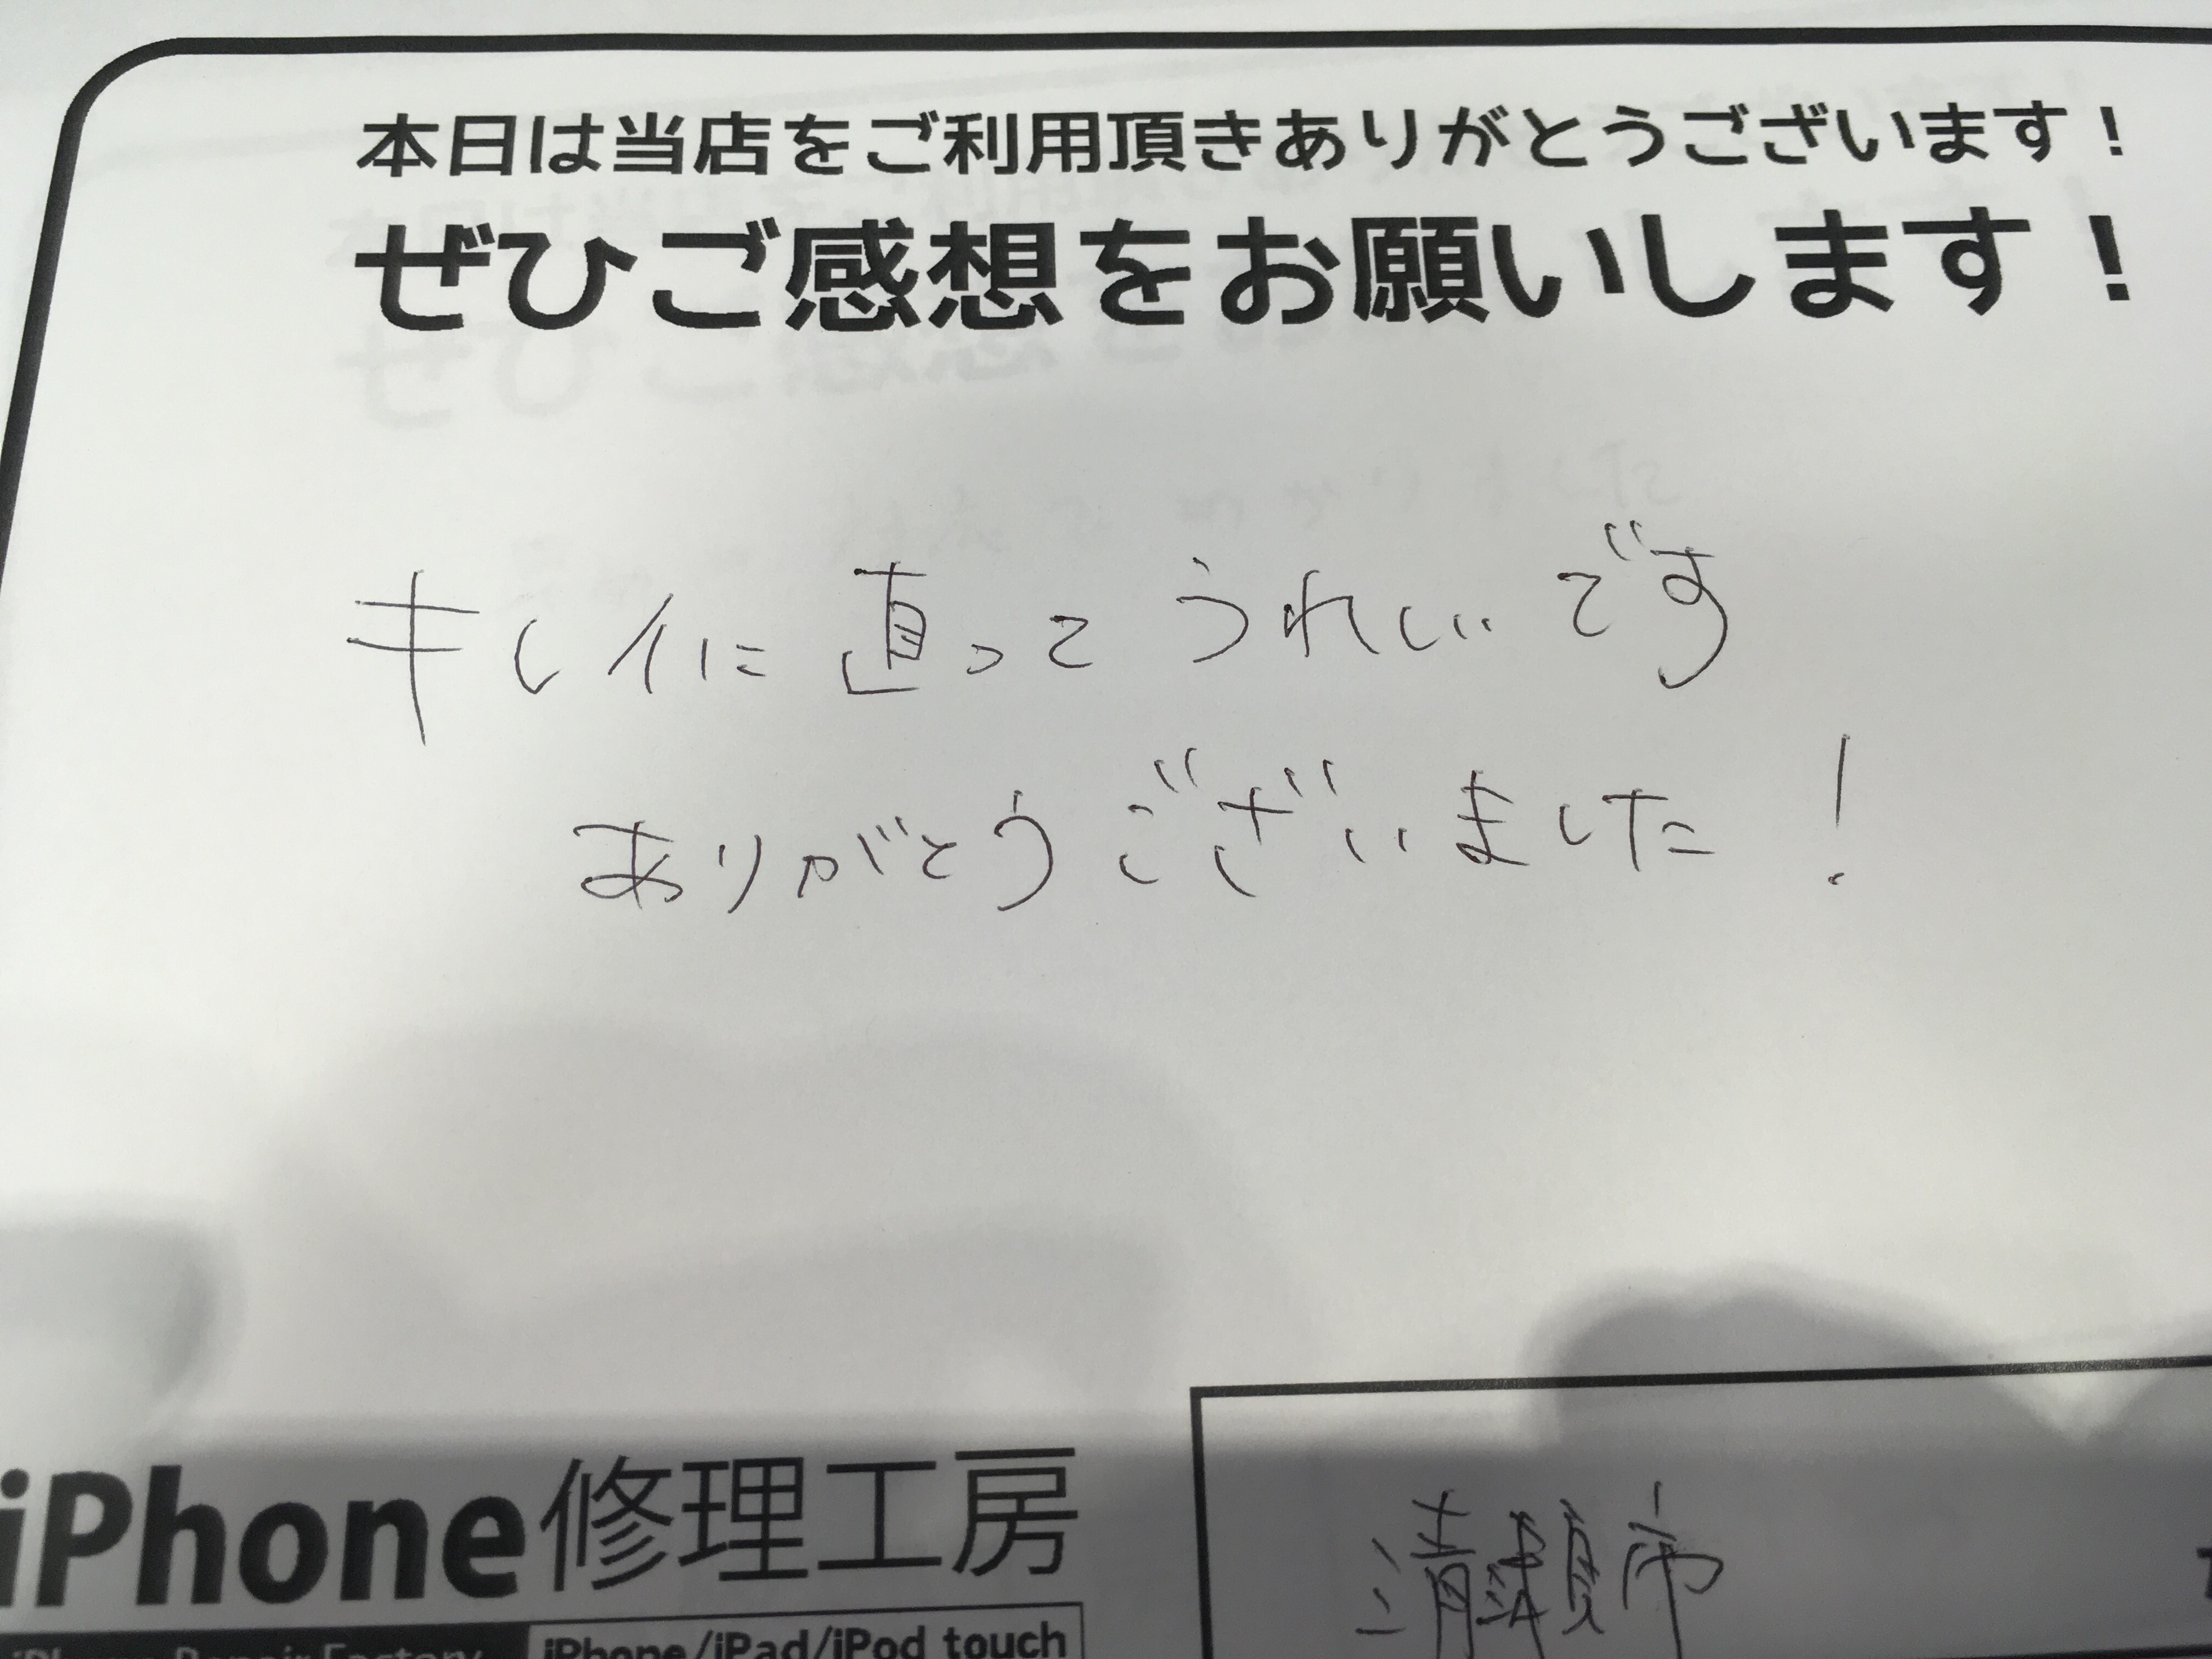 本日は当店をご利用頂きありがとうございます！
ぜひご感想をお願いします！
キレイに直ってうれしいです
ありがとうございました！
iPhone修理工房
清瀬市
iPhone/iPad/iPod touch